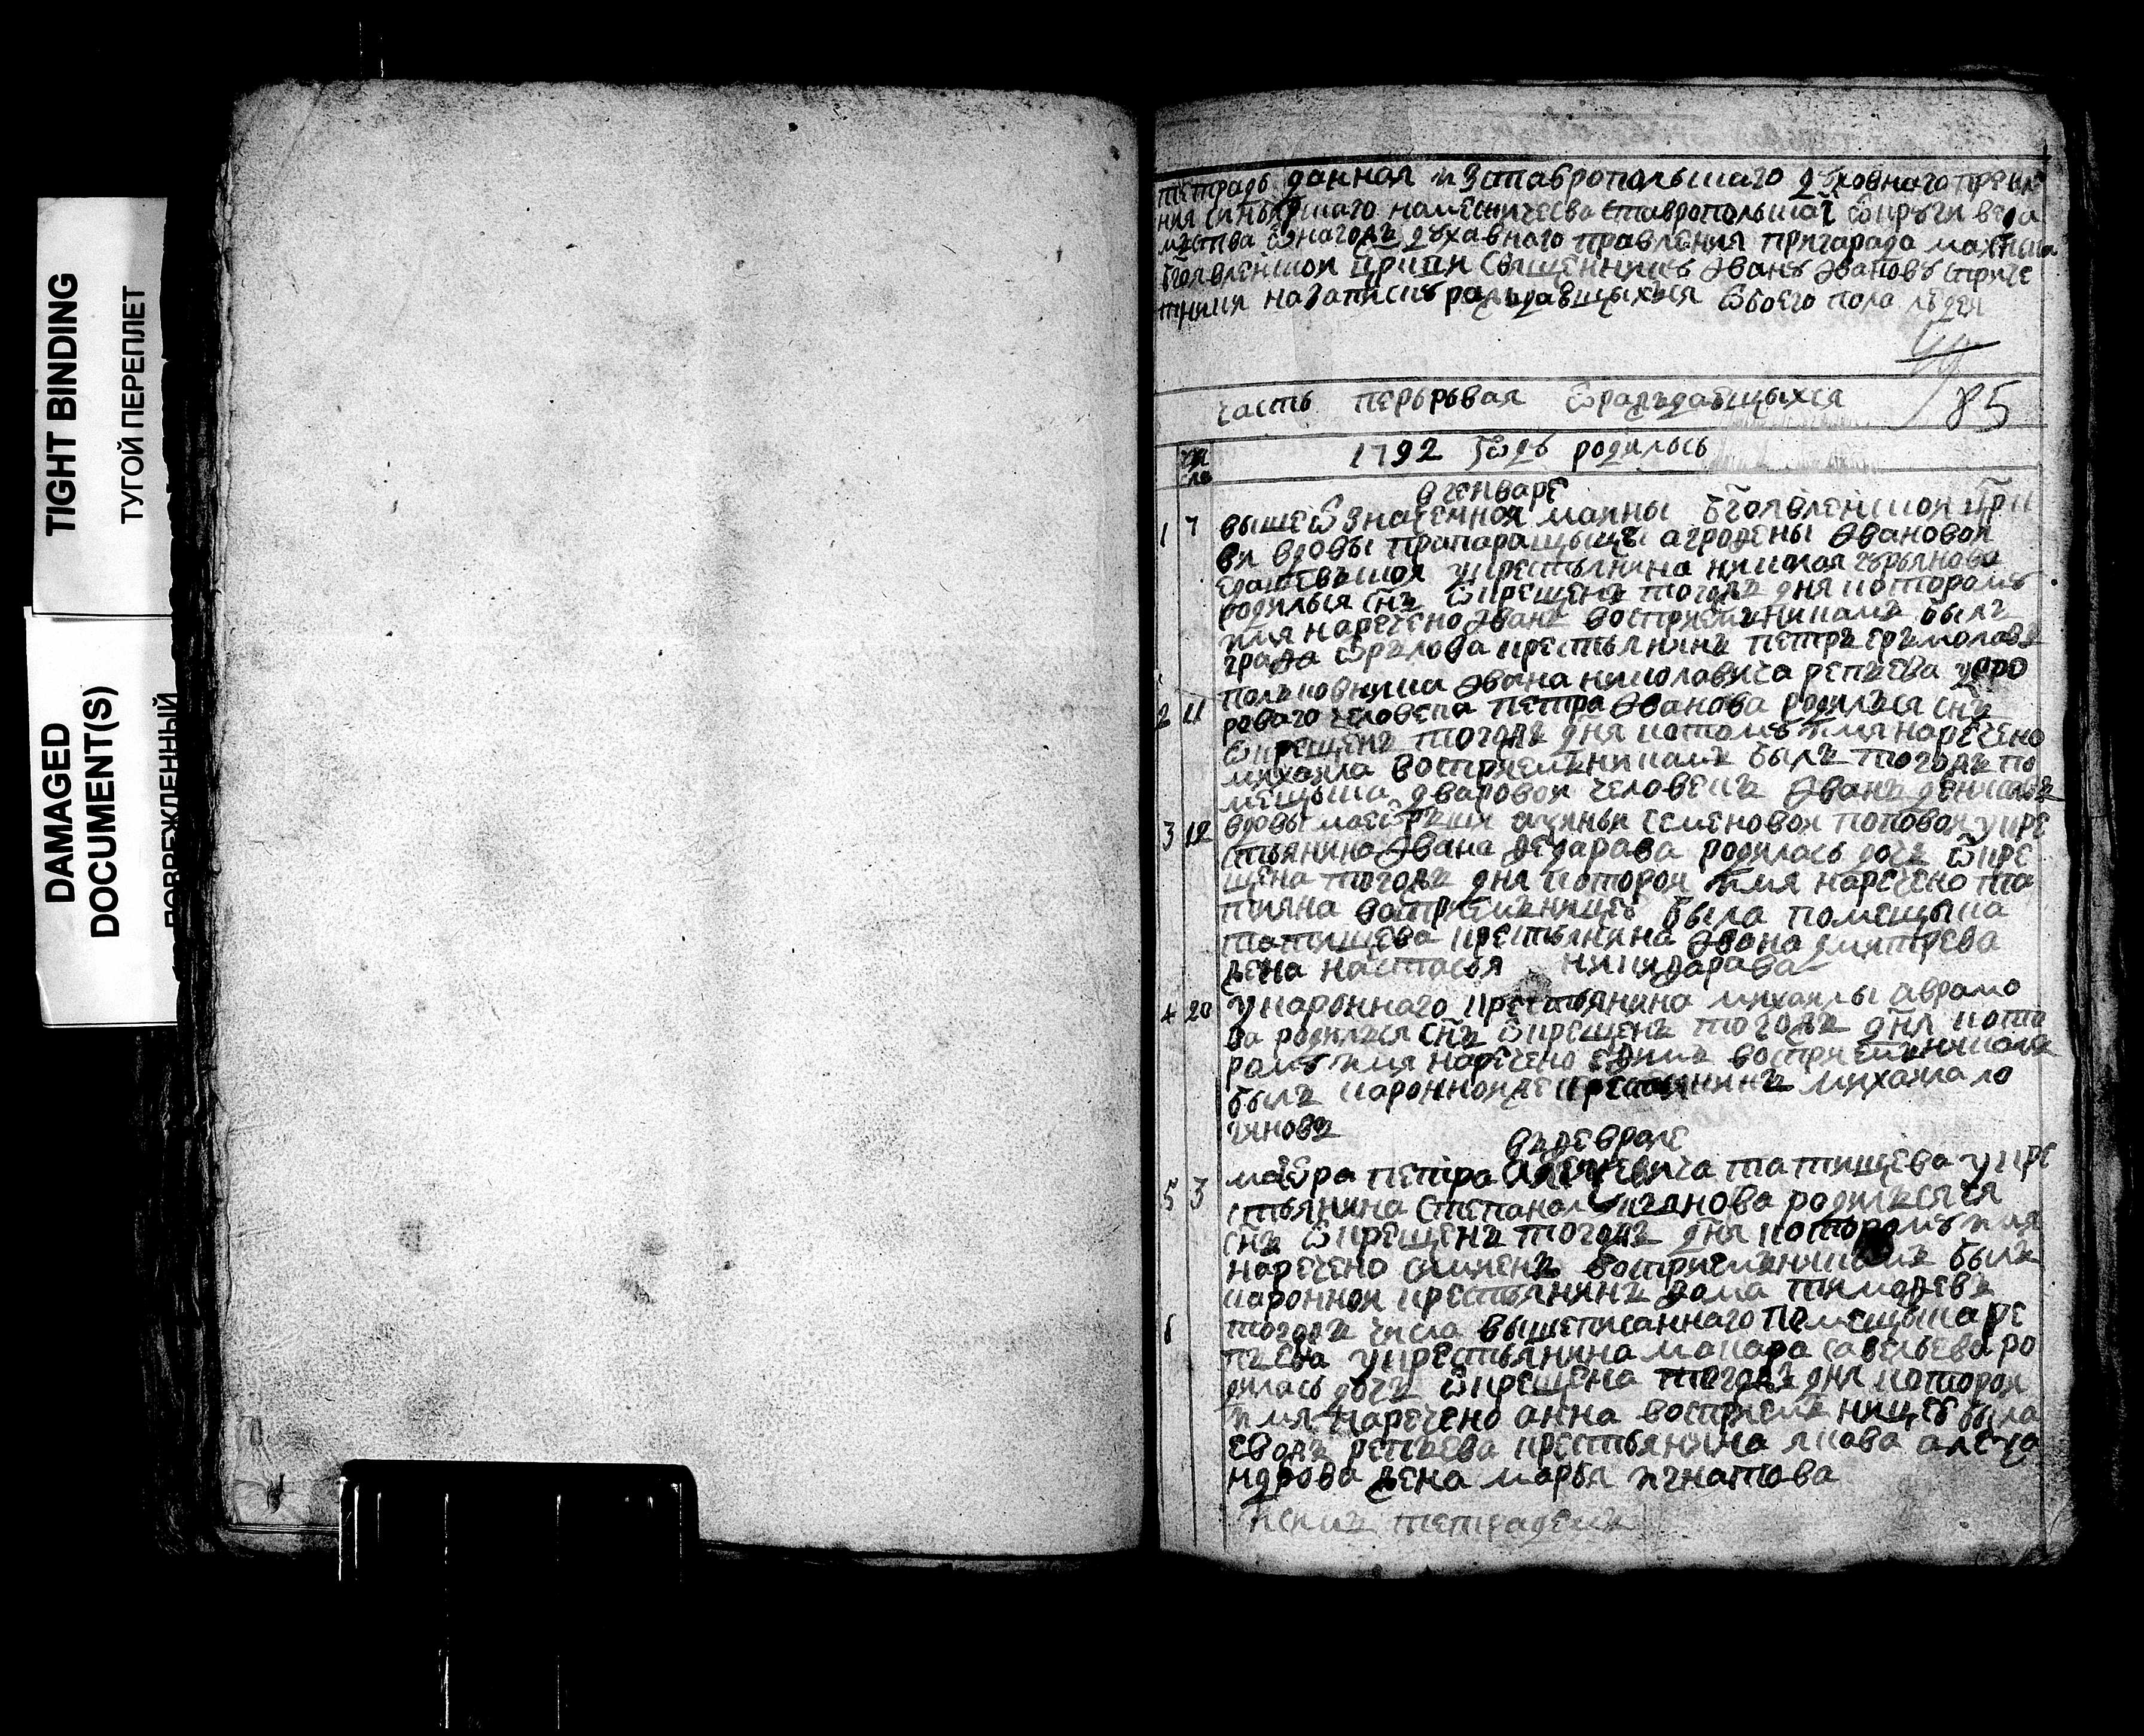 TIGHT BINDING
ТУГОЙ ПЕРЕПЛЕТ
DAMAGED
DOCUMENT(S)
ПОВРЕЖДЕННЫЙ
тетрадь данная изставропольшаго духовнаго правле
ния синбиршаго намесничесва ставропольшаі ѿкруги веда
мъства ѿнагожъ духавнаго правления пригарада маины
бгоявленшои цркви священникъ Ѳванъ Ѳвановъ стриче
тники назаписку ражъдавшыхъся ѿбоего пола людеи
часть перьрвая ѿражъдаѵшыхся 85
чи
сла
1792 годъ родилось
вгенваре
1 7 вышеѿзначемнои маины бгоявленшои цри
ви вдовы прапаращыцы аграфены Ѳвановои
укрестьянина николая
родилься снъ ѿкрещенъ тогожъ дня котораму
имя наречено Ѳванъ восприемъникамъ былъ
графа ѿрълова крестьянинъ петръ еръмолавъ
2 11 полъковника Ѳвана николавича репъева удво
роваго человека петра Ѳванова родилъся снъ
ѿкрещенъ тогожъ дня котому имя наречено
михаила восприемъникамъ былъ тогожъ по
мещыка дваровои человекъ Ѳванъ
3 12 вдовы маеѿръши семеновои поповои укре
стьянина Ѳвана родилась дочъ ѿкре
щена тогожъ дня которои имя наречено та
тияна восприемъницеѵ была помещыка
татищева крестьянина Ѳвана дмитрева
жена настасья никифарава
4 20 укароннаго крестьянина михаилы аврамо
ва родилъся снъ ѿкрещенъ тогожъ дня кото
раму имя наречено ефимъ восприемъникамъ
былъ кароннои же крестьянинъ михаила ло
гиновъ
въфеврале
5 3 маеѿра петра татищева укре
стьянина степана родилъсяся
снъ ѿкрещенъ тогожъ дня котораму имя
наречено симиенъ восприемъникамъ былъ
кароннои крестьянинъ фома тимофевъ
6 тогожъ числа вышеписаннаго помещыка ре
пъева укрестьянина макара савельева ро
дилась дочъ ѿкрещена тогожъ дня которои
имя наречено анна восприемъницеѵ была
евожъ репъева крестьянина якава алеѯа
ндрова жена марья игнатова